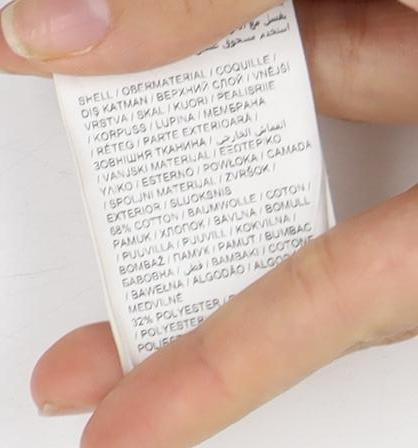 استخدم مسحوق
SHELL / OBERMATERIAL / COQUILLE /
DIŞ KATMAN / ВЕРХНИЙ СЛОЙ / VNĚJŠÍ
VRSTVA / SKAL / KUORI / PEALISRIIE
/ KORPUSS / LUPINA / МЕМБРАНА
/ RÉTEG / PARTE EXTERIOARĂ /
ЗОВНІШНЯ ТКАНИНА / القماش الخارجي
/ VANJSKI MATERIJAL / ΕΞΩΤΕΡΙΚΟ
ΥΛΙΚΟ / ESTERNO / POWŁOKA / CAMADA
/ SPOLJNI MATERIJAL / ZVRŠOK /
EXTERIOR / SLUOKSNIS
68% COTTON / BAUMWOLLE / COTON /
PAMUK / ХЛОПОК / BAVLNA / BOMULL
/ PUUVILLA / PUUVILL / KOKVILNA /
BOMBAŽ / ПАМУК / PAMUT / BUMBAC
БАВОВНА / قطن / ΒΑΜΒΑΚΙ / COTONE
/ BAWEŁNA / ALGODÃO /
MEDVILNĖ
32% POLYESTER /
/ POLYESTER